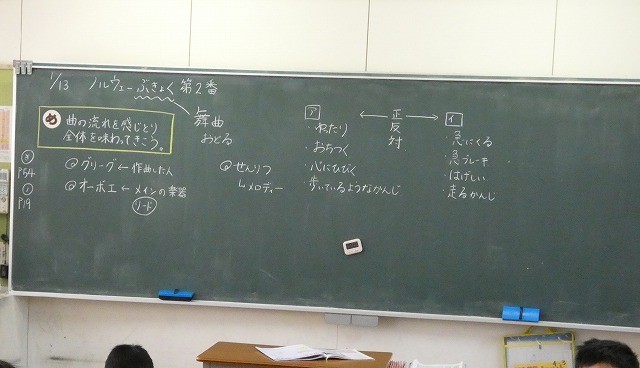 1/13 ノルウェーぶきょく 第2番
舞曲
おどる
め 曲の流れを感じとり
全体を味わってきこう。
P54
P19
@グリーグ←作曲した人
@オーボエ←メインの楽器
ノート
@せんりつ
メロディー
ア ←正反対→ イ
・ゆったり
・おちつく
・心にひびく
・歩いているようなかんじ
・急にくる
・急ブレーキ
・はげしい
・走るかんじ